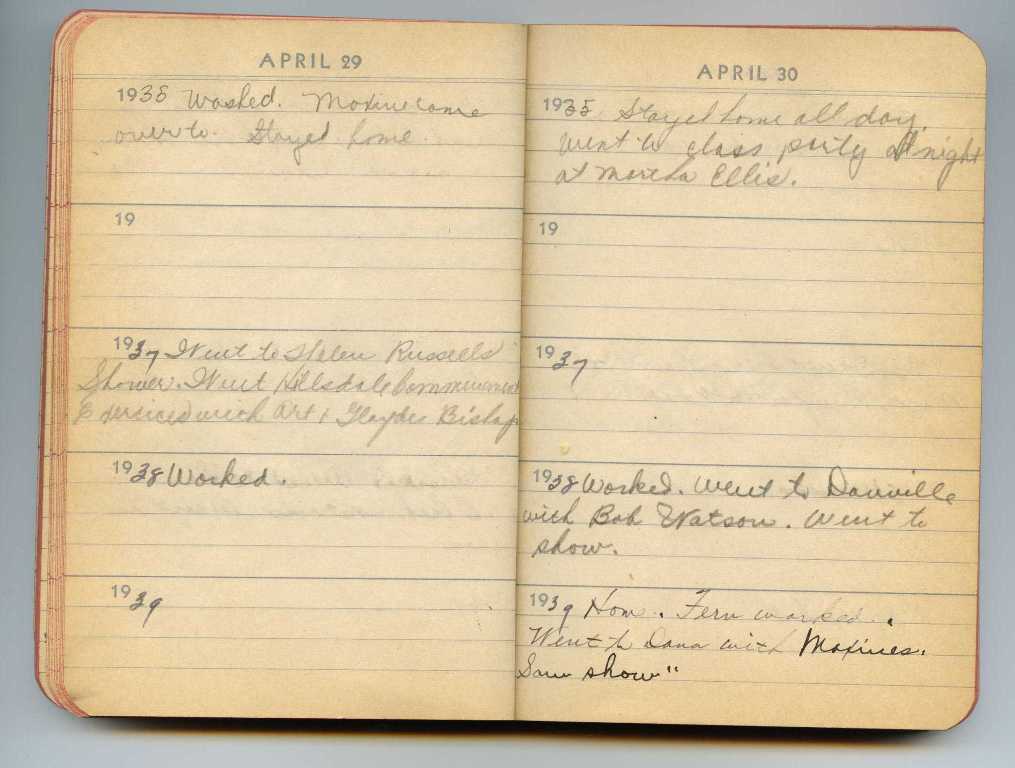 APRIL 29
1935 Washed. Maxine came
over to. Stayed home.
19
1937 Went to Helen Russells
Shower. Went Hillsdale Commencement
Exercises with Art + Glayds Bishop
1938 Worked.
1939
APRIL 30
1935 Stayed home all day.
Went to class party at night
at Martha Ellis.
19
1937
1938 Worked. Went to Danville
with Bob Watson. Went to
show.
1939 Home. Fern worked.
Went to Dana with Maxines.
Saw show"